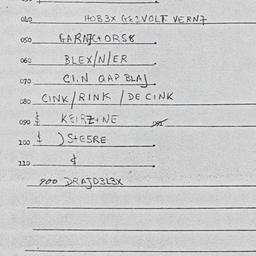 040 HOB3X GE2VOLT VERN7
050 GARN7C+ORS8
060 BLEX/N/ER
070 CI.N QAP BLAJ
080 CINK/RINK/DECINK
090 & KEIRZ+NE
100 & )S+E5RE
110 &
900 DRAJD3L3X